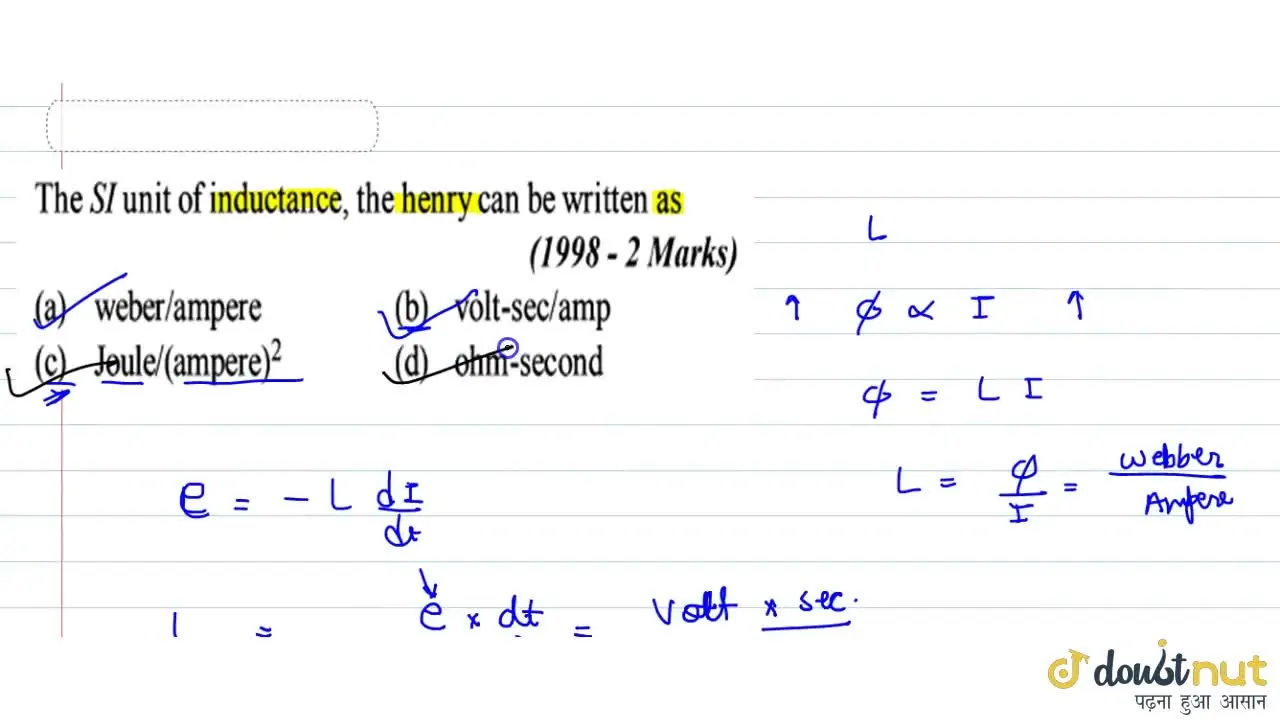 The SI unit of inductance, the henry can be written as
(1998 - 2 Marks)
(a) weber/ampere (b) volt-sec/amp
(c) Joule/(ampere)² (d) ohm-second
L
↑ ϕ ∝ I ↑
ϕ = L I
L = ϕ/I = Webber/Ampere
e = - L dI/dt
e × dt = Volt × sec.
doubtnut
पढ़ना हुआ आसान